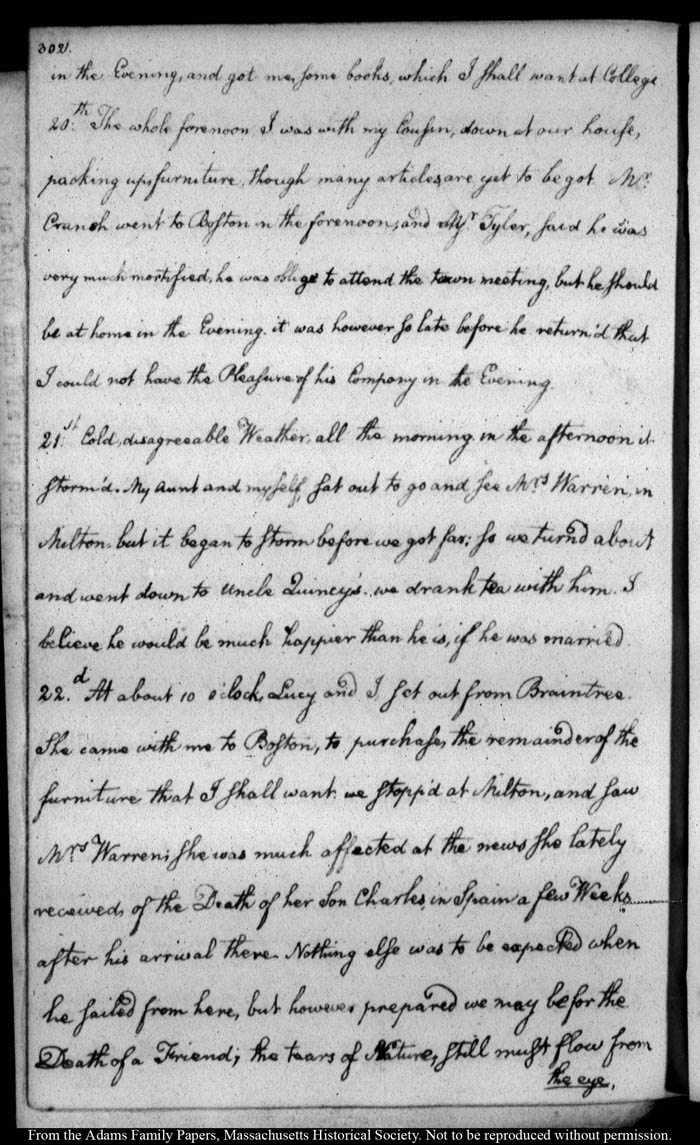 302.
in the Evening, and got me, some books, which I shall want at College
20.th The whole forenoon I was with my Cousin, down at our house,
packing up, furniture, though many articles are yet to be got. Mr.
Cranch went to Boston in the forenoon, and Mr. Tyler, said he was
very much mortified, he was oblig'd to attend the town meeting, but he should
be at home in the Evening. it was however so late before he return'd that
I could not have the Pleasure of his Company in the Evening.
21.st Cold, disagreeable Weather, all the morning. in the afternoon it
storm'd. My Aunt and myself, sat out to go and, see Mrs. Warren, in
Milton. but it began to storm before we got far; so we turn'd about
and went down to Uncle Quincy's. we drank tea with him. I
believe he would be much happier than he is, if he was married.
22.d At about 10 o'clock, Lucy and I set out from Braintree.
She came with me to Boston, to purchase, the remainder of the
furniture that I shall want. we stopp'd at Milton, and saw
Mrs. Warren; she was much affected at the news she lately
received, of the Death of her Son Charles, in Spain a few Weeks
after his arrival there. Nothing else was to be expected when
he sailed from here, but however prepared we may be for the
Death of a Friend; the tears of Nature, still must flow from
the eye,
From the Adams Family Papers, Massachusetts Historical Society. Not to be reproduced without permission.